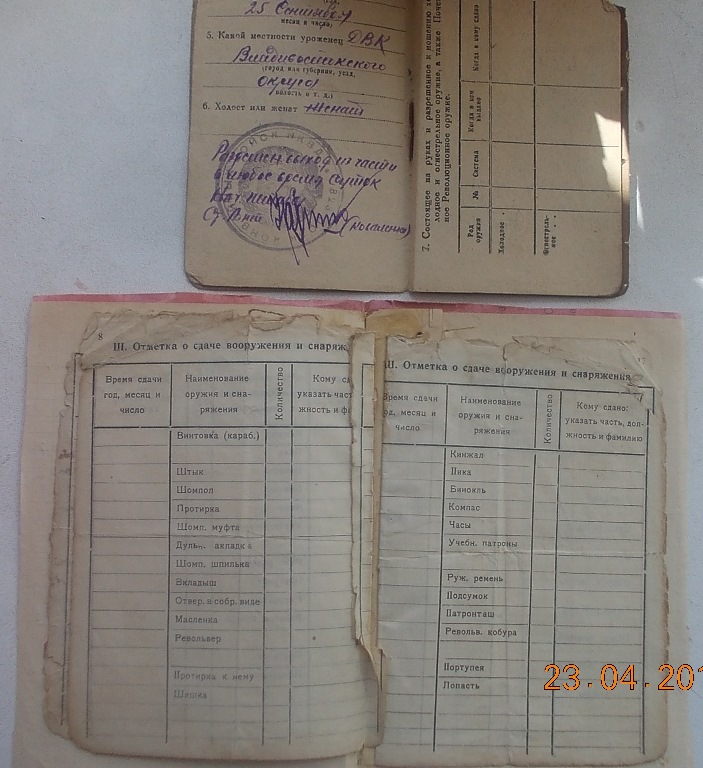 25 Сентября
месяц и число)
5. Какой местности уроженец ДВК
Владивостокского
(город или губерния, уезд,
округа
волость и т. д.)
6. Холост или женат женат
Разрешен выход из части
в любое время суток
Ст. Лейт
(Коваленко)
КОНВОЙН
ВОЙСК НКВД
7. Состоящее на руках и разрешенное к ношению хо-
лодное и огнестрельное оружие, а также Поче
ное Революционное оружие.
Род
оружия
№
Система
Когда и кем
выдано
Когда и кому сдано
Холодное .
Огнестрель-
ное . .
8
III. Отметка о сдаче вооружения и снаряж
Время сдачи
год, месяц и
число
Наименование
оружия и сна-
ряжения
Количество
Кому сд
указать част
жность и фа
Винтовка (караб.)
Штык
Шомпол
Протирка
Шомп. муфта
Дульн. накладка
Шомп. шпилька
Вкладыш
Отвер. в собр. виде
Масленка
Револьвер
Протирка к нему
Шишка
17
III. Отметка о сдаче вооружения и снаряжения
Время сдачи
год, месяц и
число
Наименование
оружия и сна-
ряжения
Количество
Кому сдано:
указать часть, дол-
жность и фамилию
Кинжал
Пика
Бинокль
Компас
Часы
Учебн. патроны
Руж. ремень
Подсумок
Патронташ
Револьв. кобура
Портупея
Лопасть
23.04.201